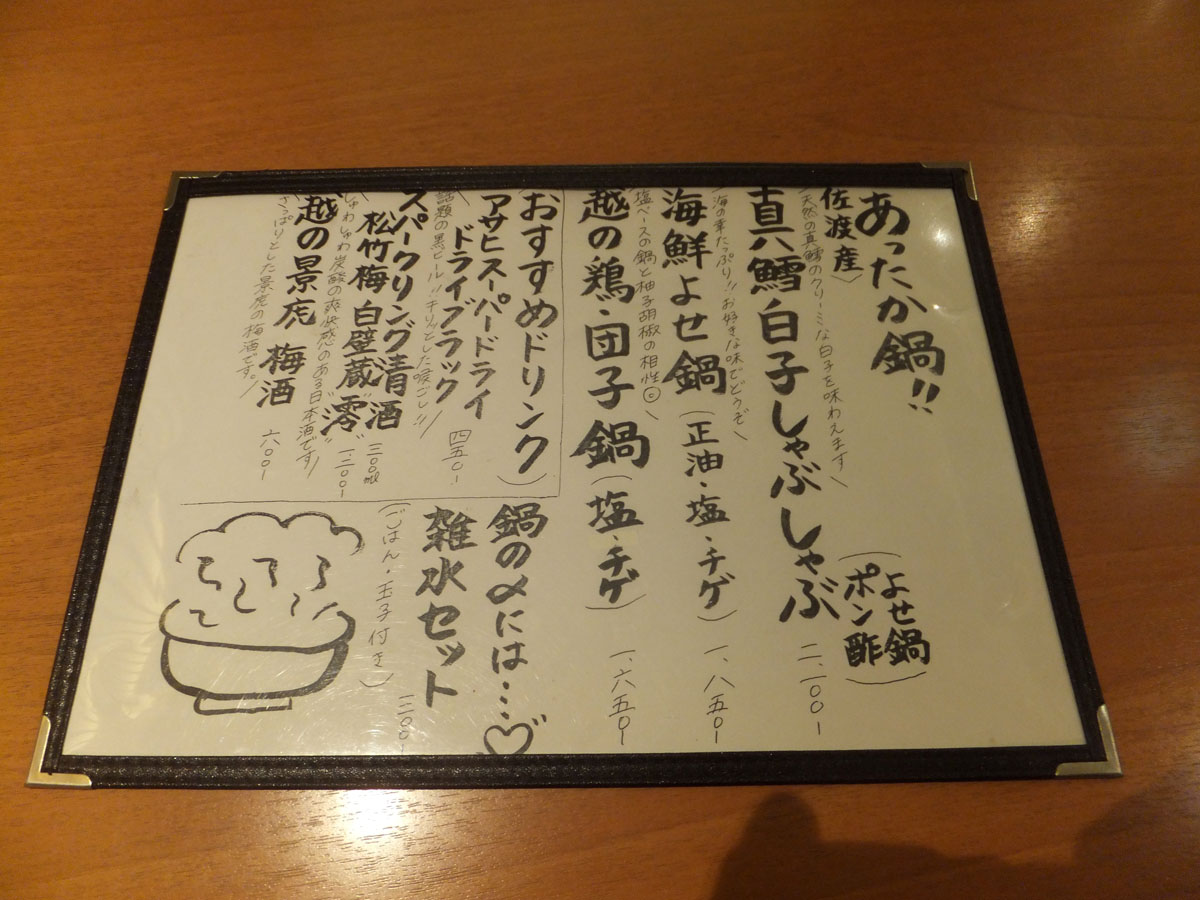 あったか鍋!!
佐渡産
真鱈白子しゃぶしゃぶ
(よせ鍋
ポン酢)
二、一〇〇-
天然の真鱈のクリーミな白子を味わえます
海鮮よせ鍋(正油・塩・チゲ)
一、八五〇-
海の幸たっぷり!!お好きな味でどうぞ
越の鶏・団子鍋(塩・チゲ)
一、六五〇-
塩ベースの鍋と柚子胡椒の相性◎
おすすめドリンク
アサヒスーパードライ
ドライブラック
四五〇-
話題の黒ビール!!キリッとした喉ごし!!
スパークリング清酒
松竹梅 白壁蔵"澪"
三〇〇ml
一、二〇〇-
しゅわしゅわ炭酸の爽快感のある日本酒です
越の景虎 梅酒
六〇〇-
さっぱりとした景虎の梅酒です。
鍋の〆には…♡
雑水セット
(ごはん・玉子付き)